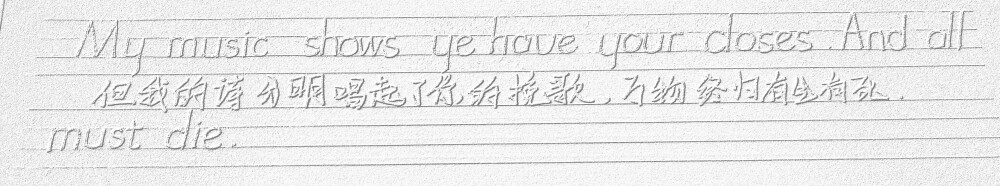 My music shows ye have your closes. And all
但我的诗分明唱起了你的挽歌，万物终归有生有死.
must die.